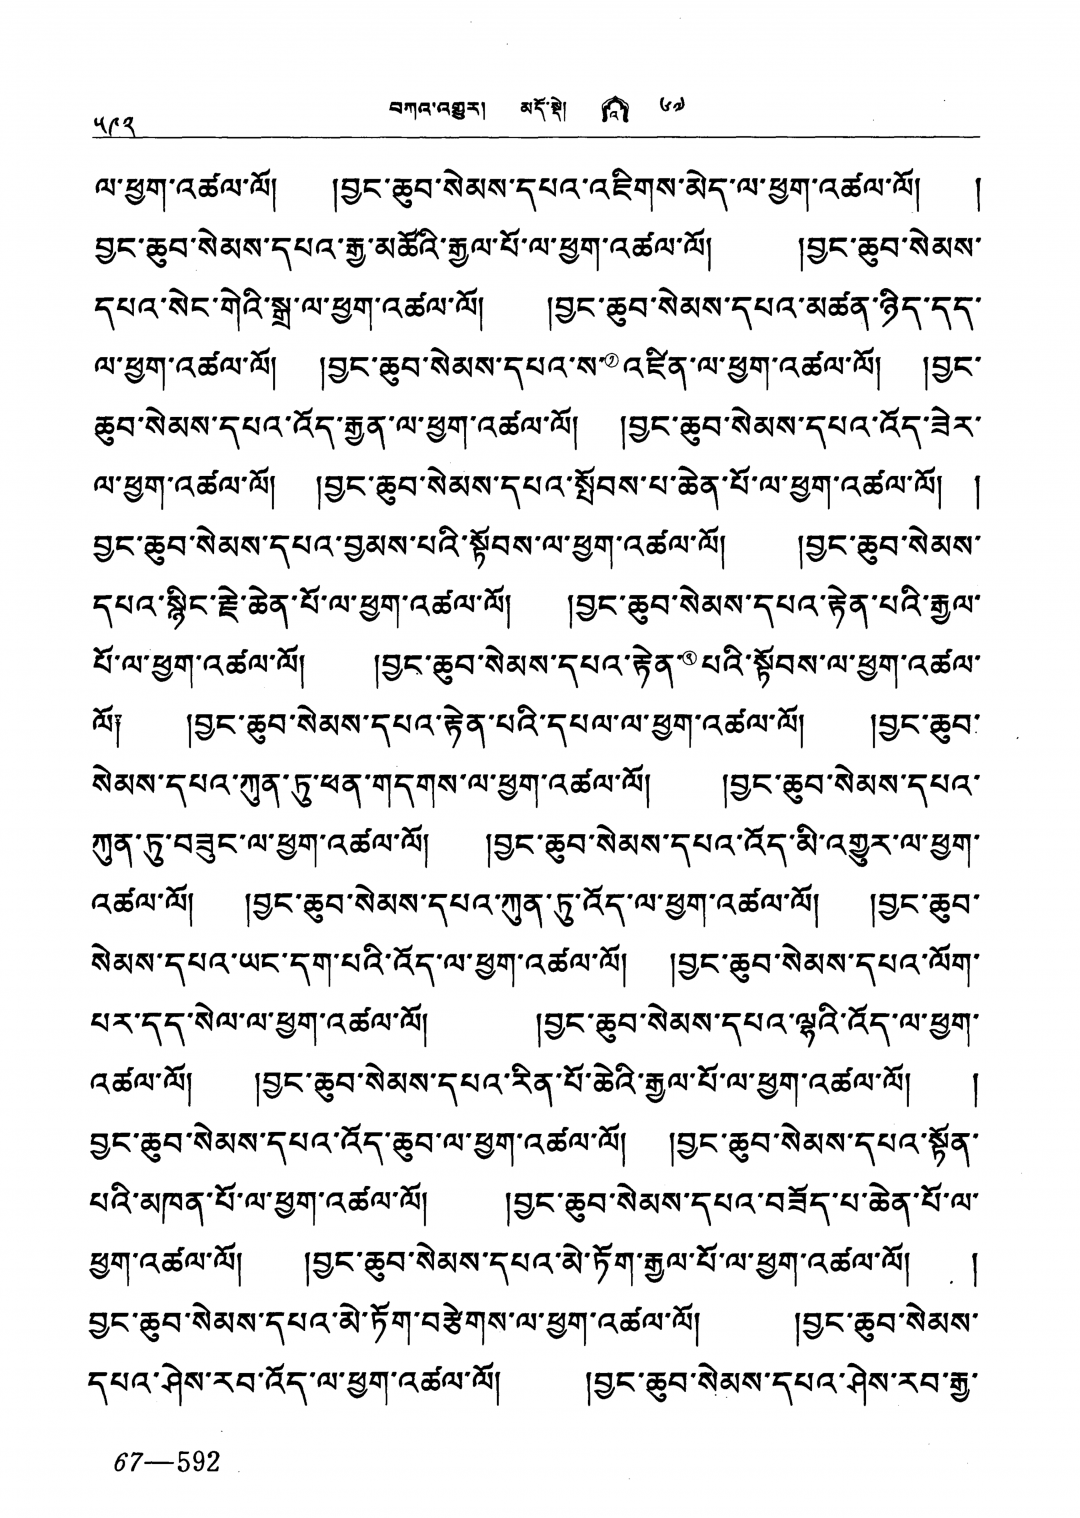 ༥༩༢ བཀའ་འགྱུར། མདོ་སྡེ། ༦༧
ལ་ཕྱག་འཚལ་ལོ། །བྱང་ཆུབ་སེམས་དཔའ་འཇིགས་མེད་ལ་ཕྱག་འཚལ་ལོ། །
བྱང་ཆུབ་སེམས་དཔའ་རྒྱ་མཚོའི་རྒྱལ་པོ་ལ་ཕྱག་འཚལ་ལོ། །བྱང་ཆུབ་སེམས་
དཔའ་སེང་གེའི་སྒྲ་ལ་ཕྱག་འཚལ་ལོ། །བྱང་ཆུབ་སེམས་དཔའ་མཚན་ཉིད་དད་
ལ་ཕྱག་འཚལ་ལོ། །བྱང་ཆུབ་སེམས་དཔའ་ས་①འཛིན་ལ་ཕྱག་འཚལ་ལོ། །བྱང་
ཆུབ་སེམས་དཔའ་འོད་རྒྱན་ལ་ཕྱག་འཚལ་ལོ། །བྱང་ཆུབ་སེམས་དཔའ་འོད་ཟེར་
ལ་ཕྱག་འཚལ་ལོ། །བྱང་ཆུབ་སེམས་དཔའ་སྤོབས་པ་ཆེན་པོ་ལ་ཕྱག་འཚལ་ལོ། །
བྱང་ཆུབ་སེམས་དཔའ་བྱམས་པའི་སྟོབས་ལ་ཕྱག་འཚལ་ལོ། །བྱང་ཆུབ་སེམས་
དཔའ་སྙིང་རྗེ་ཆེན་པོ་ལ་ཕྱག་འཚལ་ལོ། །བྱང་ཆུབ་སེམས་དཔའ་རྟེན་པའི་རྒྱལ་
པོ་ལ་ཕྱག་འཚལ་ལོ། །བྱང་ཆུབ་སེམས་དཔའ་རྟེན་②པའི་སྟོབས་ལ་ཕྱག་འཚལ་
ལོ། །བྱང་ཆུབ་སེམས་དཔའ་རྟེན་པའི་དཔལ་ལ་ཕྱག་འཚལ་ལོ། །བྱང་ཆུབ་
སེམས་དཔའ་ཀུན་ཏུ་ཕན་གདགས་ལ་ཕྱག་འཚལ་ལོ། །བྱང་ཆུབ་སེམས་དཔའ་
ཀུན་ཏུ་བཟུང་ལ་ཕྱག་འཚལ་ལོ། །བྱང་ཆུབ་སེམས་དཔའ་འོད་མི་འགྱུར་ལ་ཕྱག་
འཚལ་ལོ། །བྱང་ཆུབ་སེམས་དཔའ་ཀུན་ཏུ་འོད་ལ་ཕྱག་འཚལ་ལོ། །བྱང་ཆུབ་
སེམས་དཔའ་ཡང་དག་པའི་འོད་ལ་ཕྱག་འཚལ་ལོ། །བྱང་ཆུབ་སེམས་དཔའ་ལོག་
པར་དད་སེལ་ལ་ཕྱག་འཚལ་ལོ། །བྱང་ཆུབ་སེམས་དཔའ་ལྷའི་འོད་ལ་ཕྱག་
འཚལ་ལོ། །བྱང་ཆུབ་སེམས་དཔའ་རིན་པོ་ཆེའི་རྒྱལ་པོ་ལ་ཕྱག་འཚལ་ལོ། །
བྱང་ཆུབ་སེམས་དཔའ་འོད་ཆུབ་ལ་ཕྱག་འཚལ་ལོ། །བྱང་ཆུབ་སེམས་དཔའ་སྟོན་
པའི་མཁན་པོ་ལ་ཕྱག་འཚལ་ལོ། །བྱང་ཆུབ་སེམས་དཔའ་བཟོད་པ་ཆེན་པོ་ལ་
ཕྱག་འཚལ་ལོ། །བྱང་ཆུབ་སེམས་དཔའ་མེ་ཏོག་རྒྱལ་པོ་ལ་ཕྱག་འཚལ་ལོ། །
བྱང་ཆུབ་སེམས་དཔའ་མེ་ཏོག་བརྩེགས་ལ་ཕྱག་འཚལ་ལོ། །བྱང་ཆུབ་སེམས་
དཔའ་ཤེས་རབ་འོད་ལ་ཕྱག་འཚལ་ལོ། །བྱང་ཆུབ་སེམས་དཔའ་ཤེས་རབ་རྒྱ་
67—592